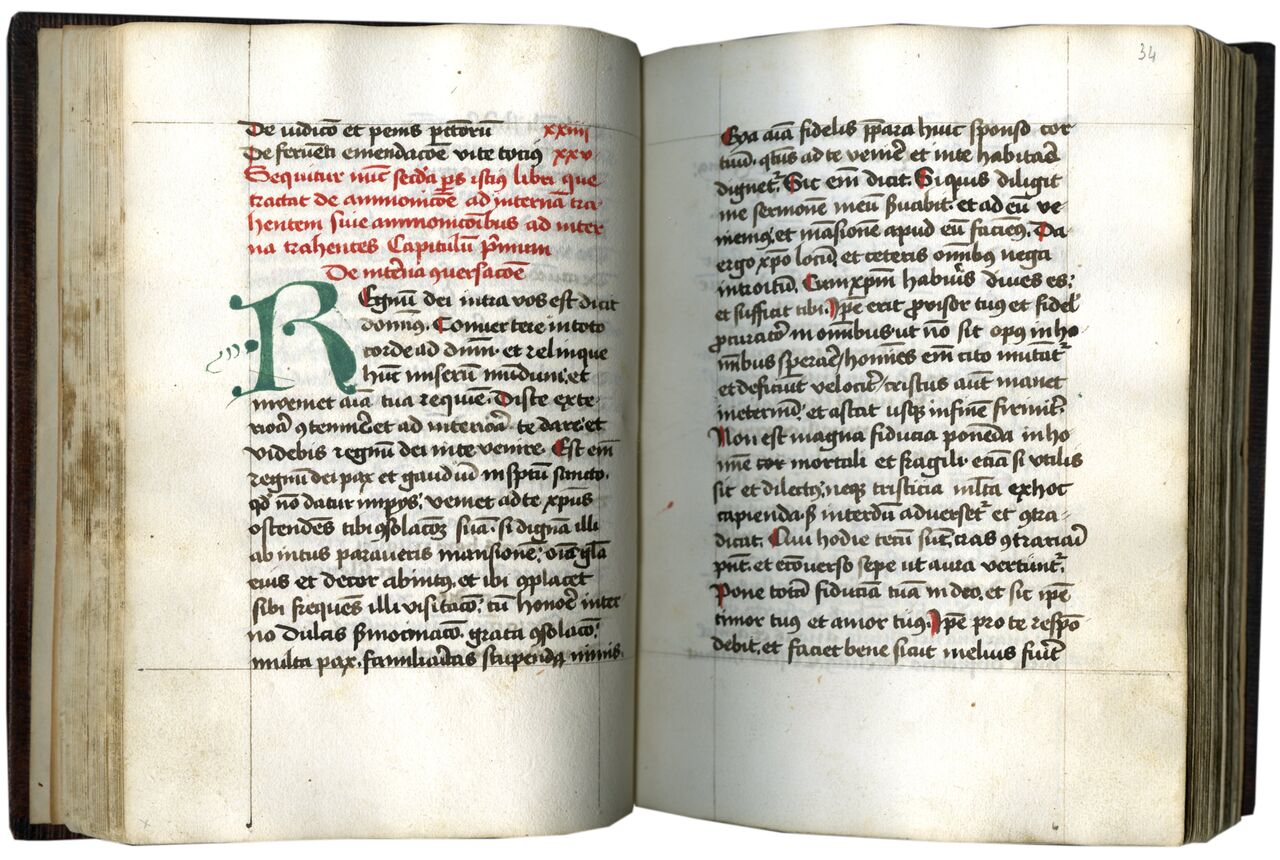 De iudico et penis pctorū xxiiii
De ferueti emendacoē vite tocius xxv
Sequitur nūc secda ps istius libri que
tractat de amonicoē ad internā tra
hentem siue ammonicōibus ad inter
na trahentes Capitulū pmum
De interna 9uersacoē
REgnū dei intra vos est dicit
domnus. Conuertere in toto
corde ad dnm. et relinque
hūc miserū mūdum. et
inveniet aīa tua requiē. Disce exte-
riora 9temnere et ad interiora te dare. et
videbis regnū dei in te venire. Est em
regnū dei pax et gaudiū in sptu sancto.
qd nō datur impijs. veniet ad te xpus
ostendes tibi 9solacoēz suā. si dignā illi
ab intus paraueris mansionē. oīa glīa
eius et decor ab intus. et ibi 9placet
sibi frequēs illi visitacō. cū hoīe inter
no dulcis smocinacō. grata 9solacō.
multa pax. familiaritas stupenda nimis.
34
Eya aīa fidelis ppara huic sponso cor
tuū. qtus ad te venire et in te habitare
dignet. Sic em dicit. Si quis diligit
me sermonē meū suabit. et ad eū ve
niemus et māsionē apud eū faciemus. Da
ergo xpo locū et ceteris omībus nega
introitū. Cum xpm habueris diues es.
et sufficit tibi. Ipe erit prouisor tuus et fidel
procurator in omībus ut nō sit opus in ho
mībus sperare/ homīes em cito mutātr
et deficiūt velociter/ cristus aūt manet
in eternū. et astat usque in finē firmiter.
Non est magna fiducia ponēda in ho
mīe cor mortali et fragili. eciā si utilis
sit et dilectus. neque tristicia mlta ex hoc
capienda. si interdū aduersetr et 9tra
dicat. Qui hodie tecū sūt, cras 9trariari
pnt. et ecouerso sepe ut aura vertūtr.
Pone totā fiduciā tuā in deo. et sit ipe
timor tuus et amor tuus. Ipe pro te respō
debit. et faciet bene sicut melius fuerit